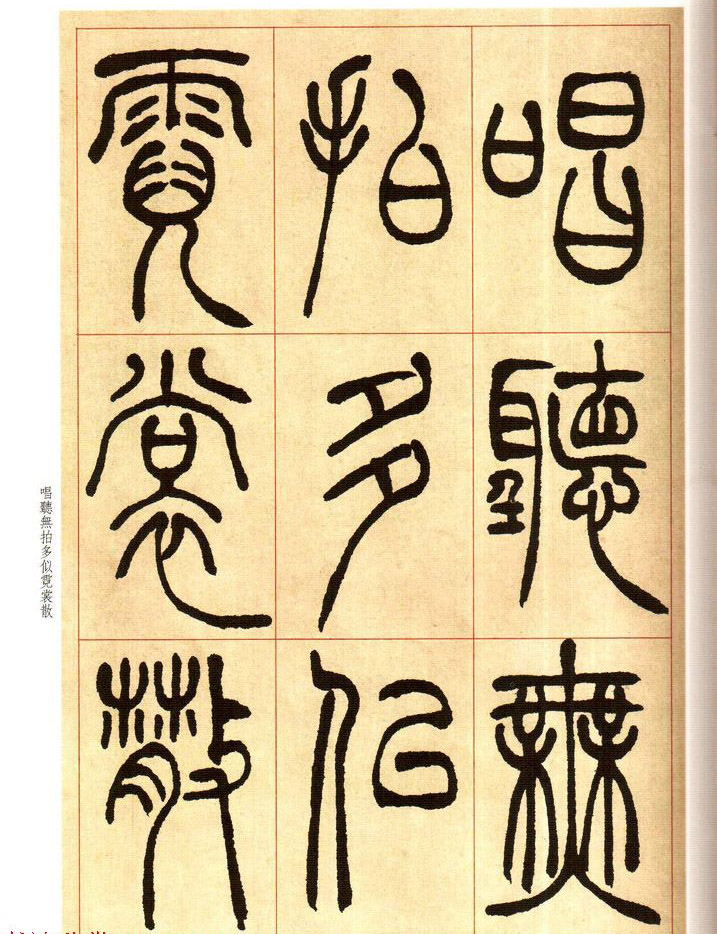 唱聽無
拍多似
霓裳散
唱聽無拍多似霓裳散